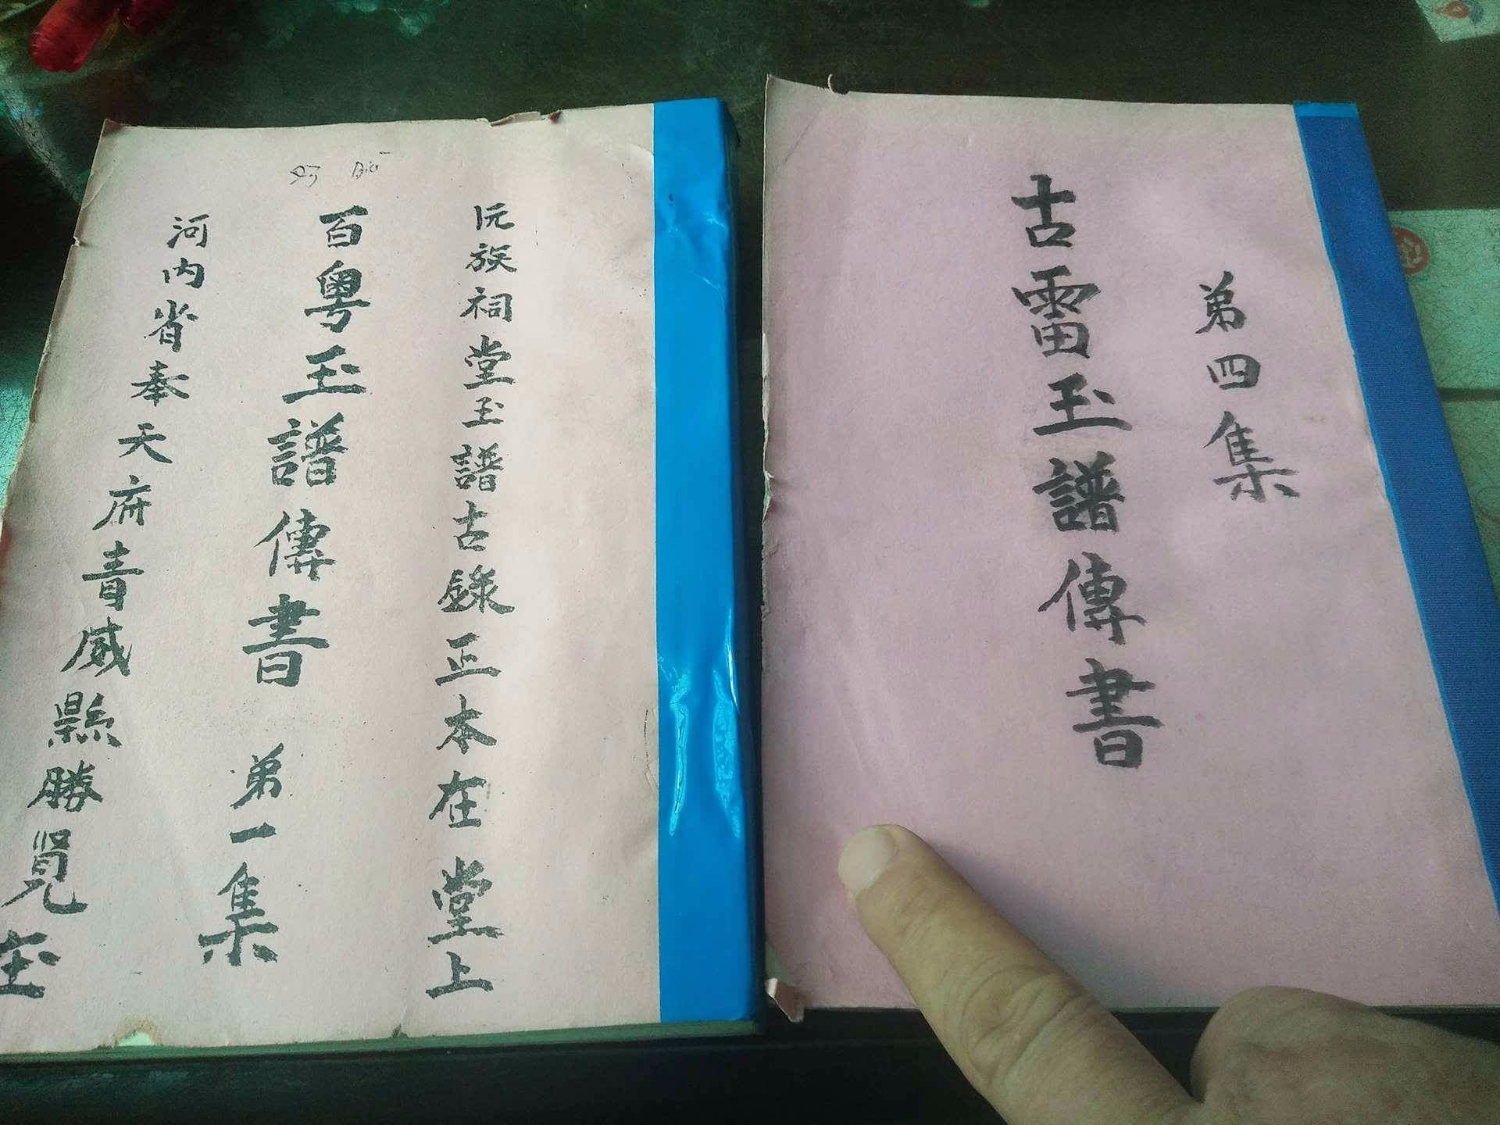 阮族祠堂玉譜古錄正本在堂上
百粵玉譜傳書 弟一集
河内省奉天府青威縣勝覽
弟四集
古雷玉譜傳書